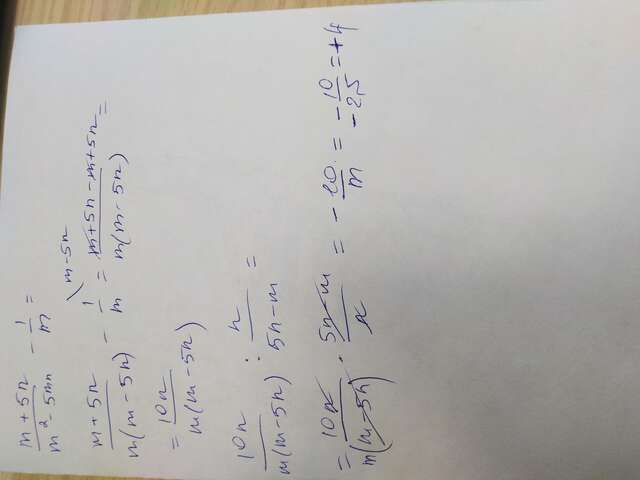 (m + 5n)/(m² - 5mn) - 1/m =
(m + 5n)/(m(m - 5n)) - 1/m \ m - 5n = (m + 5n - m + 5n)/(m(m - 5n)) =
= 10n/(m(m - 5n))
10n/(m(m - 5n)) : n/(5n - m) =
= 10n/(m(m - 5n)) · (5n - m)/n = - 10/m = - 10/-2,5 = +4